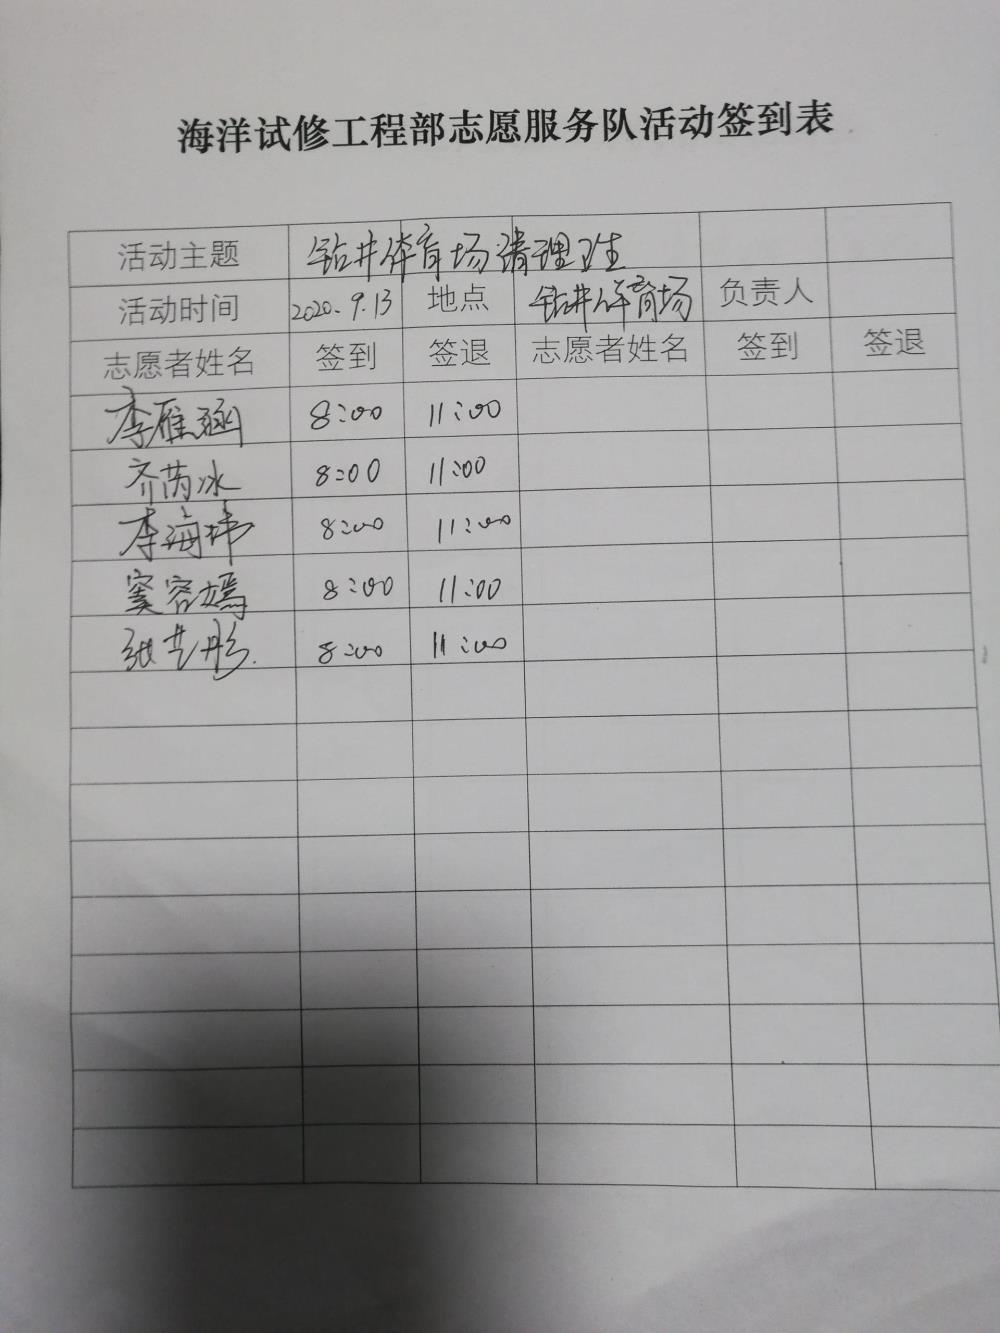 海洋试修工程部志愿服务队活动签到表
活动主题 钻井体育场清理卫生
活动时间 2020.9.13 地点 钻井体育场 负责人
志愿者姓名 签到 签退 志愿者姓名 签到 签退
李雁涵 8:00 11:00
齐芮冰 8:00 11:00
李海玮 8:00 11:00
窦容嫣 8:00 11:00
张艺彤 8:00 11:00